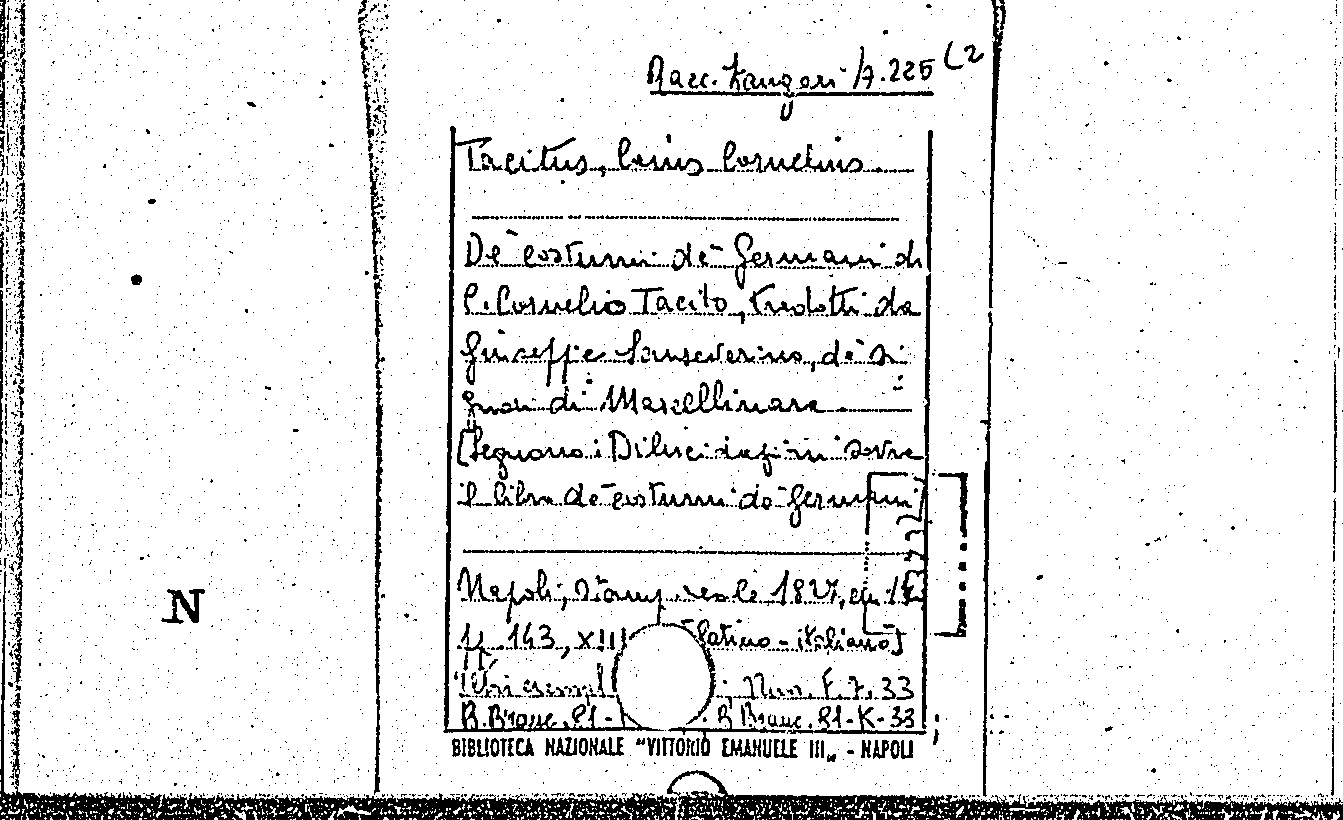 Racc. Zangari A.225 (2
Tacitus, Caius Cornelius
De' costumi de' Germani di
C. Cornelio Tacito, tradotti da
Giuseppe Sanseverino, de' Si-
gnori di Marcellinara
[Seguono: Dilucidazioni sovra
il libro de' costumi de' Germani]
Napoli, Stamp. reale 1827, in
pp. 143, XIII [latino-italiano]
Altri esempl : Nun. F. 7. 33
B. Branc. 81- B. Branc. 81-K-33
BIBLIOTECA NAZIONALE "VITTORIO EMANUELE III„ - NAPOLI
N